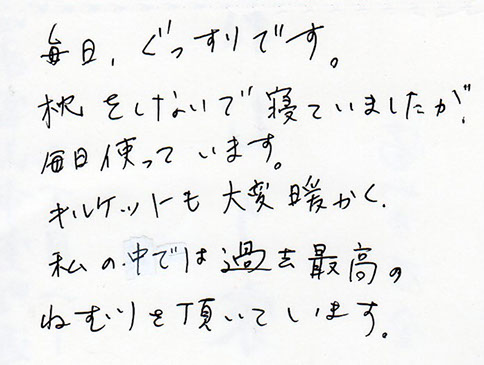 毎日、ぐっすりです。
枕をしないで寝ていましたが、
毎日使っています。
キルケットも大変暖かく、
私の中では過去最高の
ねむりを頂いています。